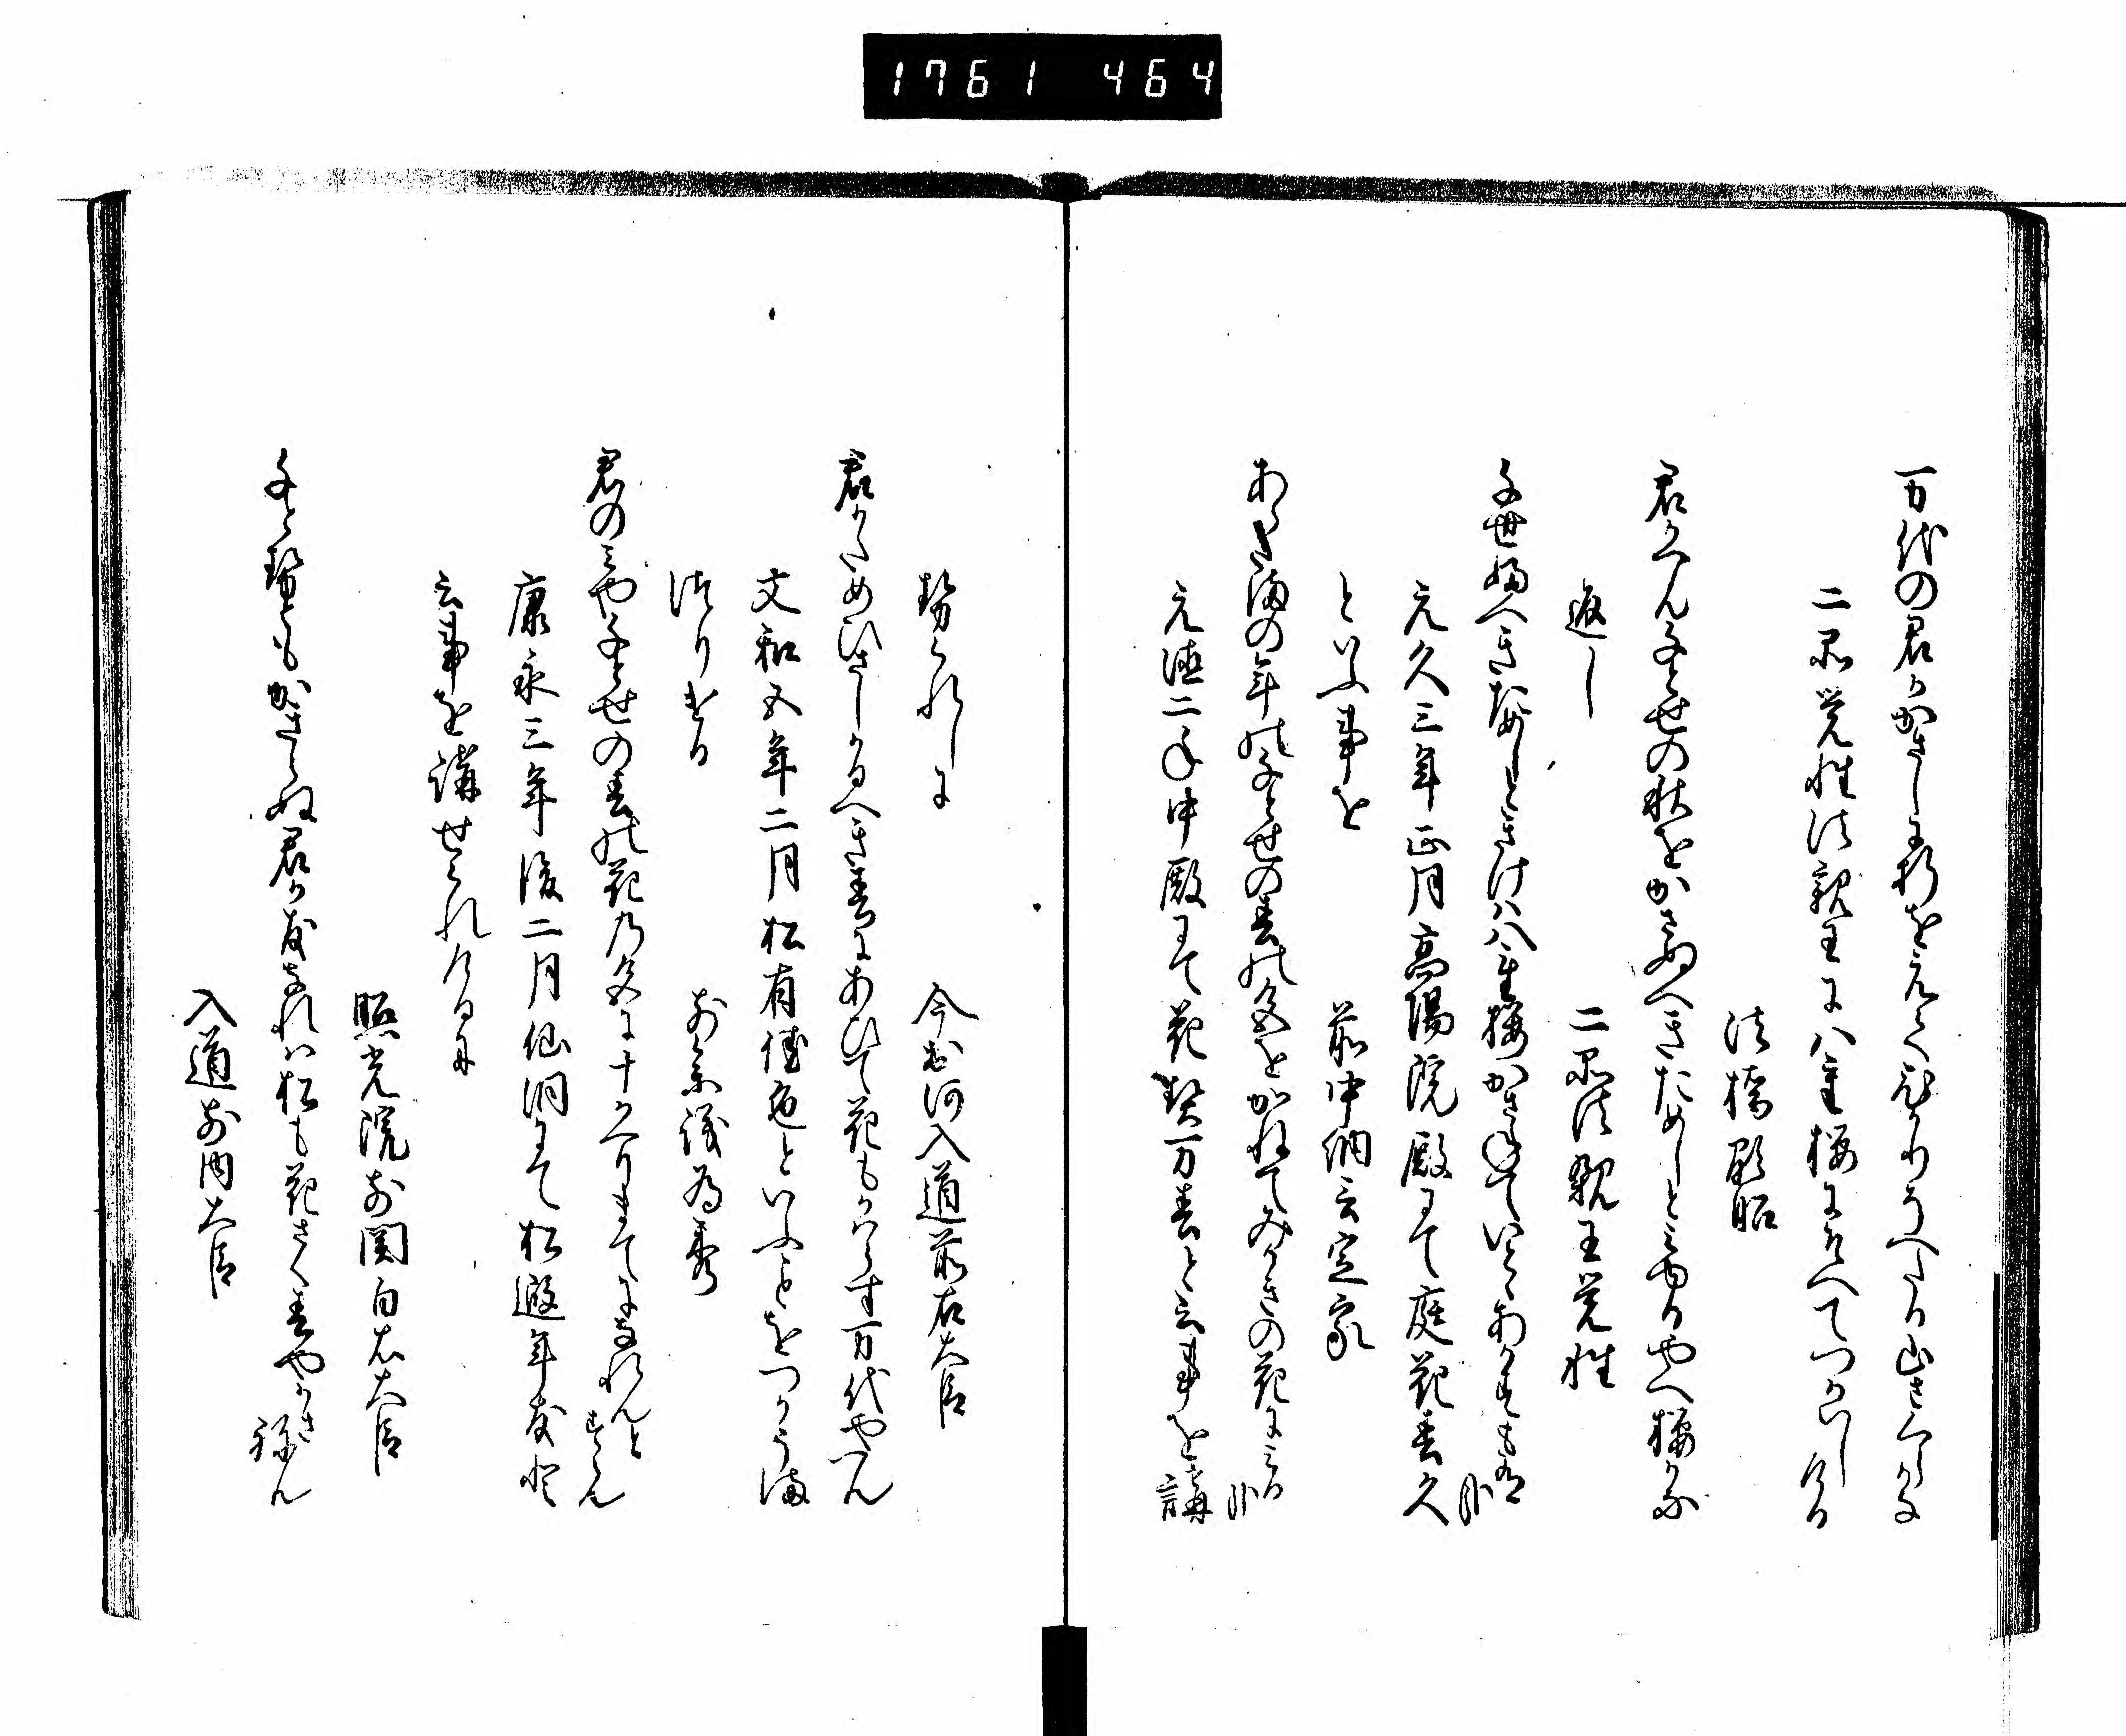 1761 464
万代の君かかさしに折をえてひかりうへたる山さくらかな
二品覚性法親王に八重桜にそへてつかはしける
法橋顕昭
君かへん千とせの秋をかさぬへきためしとみゆるやへ桜かな
返し
二品法親王覚性
千世ふへきためしときけは八重桜かさねていとゝあかすも有哉
元久三年正月高陽院殿にて庭花春久
といふ事を
前中納言定家
あらたまの年に千とせの春の色をかねてみかきの花にみる哉
元徳二年中殿にて花契万春と云事を講
せられしに
今出河入道前右大臣
君かためひさしかるへき春にあひて花もかはらす万代やへん
文和五年二月松有佳色といふことをつかうま
つりける
前参議為秀
君のみや千とせの春の花の色に十かへりまてになれんとすらん
康永三年後二月仙洞にて松遐年友と
云事を講せられけるに
照光院前関白右大臣
千とせともかきらぬ君か友なれは松も花さく春やかさねん
入道前内大臣